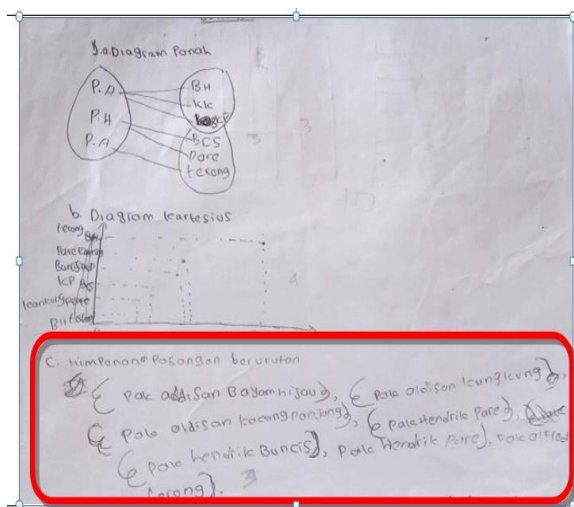 1.a Diagram Panah
P.A
P.H
P.A
BH
KK
KP
BCS
Pare
terong
3
3
b. Diagram kartesius
terong
Pare
Buncis
KCP
BH
4
C. Himponane Pasangan berurutan
{ pak addisan Bayam hijau }, { pak aldisan kungkung },
{ pak aldisan kacang panjang }, { pak Hendrik Pare },
{ pak hendrik Buncis }, pak Hendrik Pare }, pak alfred
terong }. 3